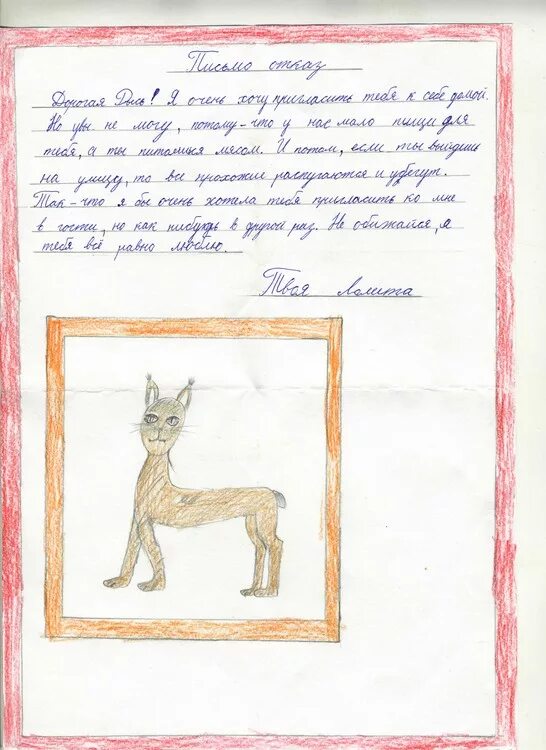 Письмо отказ
Дорогая Рысь! Я очень хочу пригласить тебя к себе домой.
Но увы не могу, потому-что у нас мало пищи для
тебя, а ты питаешься мясом. И потом, если ты выйдешь
на улицу, то все прохожие распугаются и убегут.
Так-что я бы очень хотела тебя пригласить ко мне
в гости, но как нибудь в другой раз. Не обижайся, я
тебя всё равно люблю.
Твоя Лолита